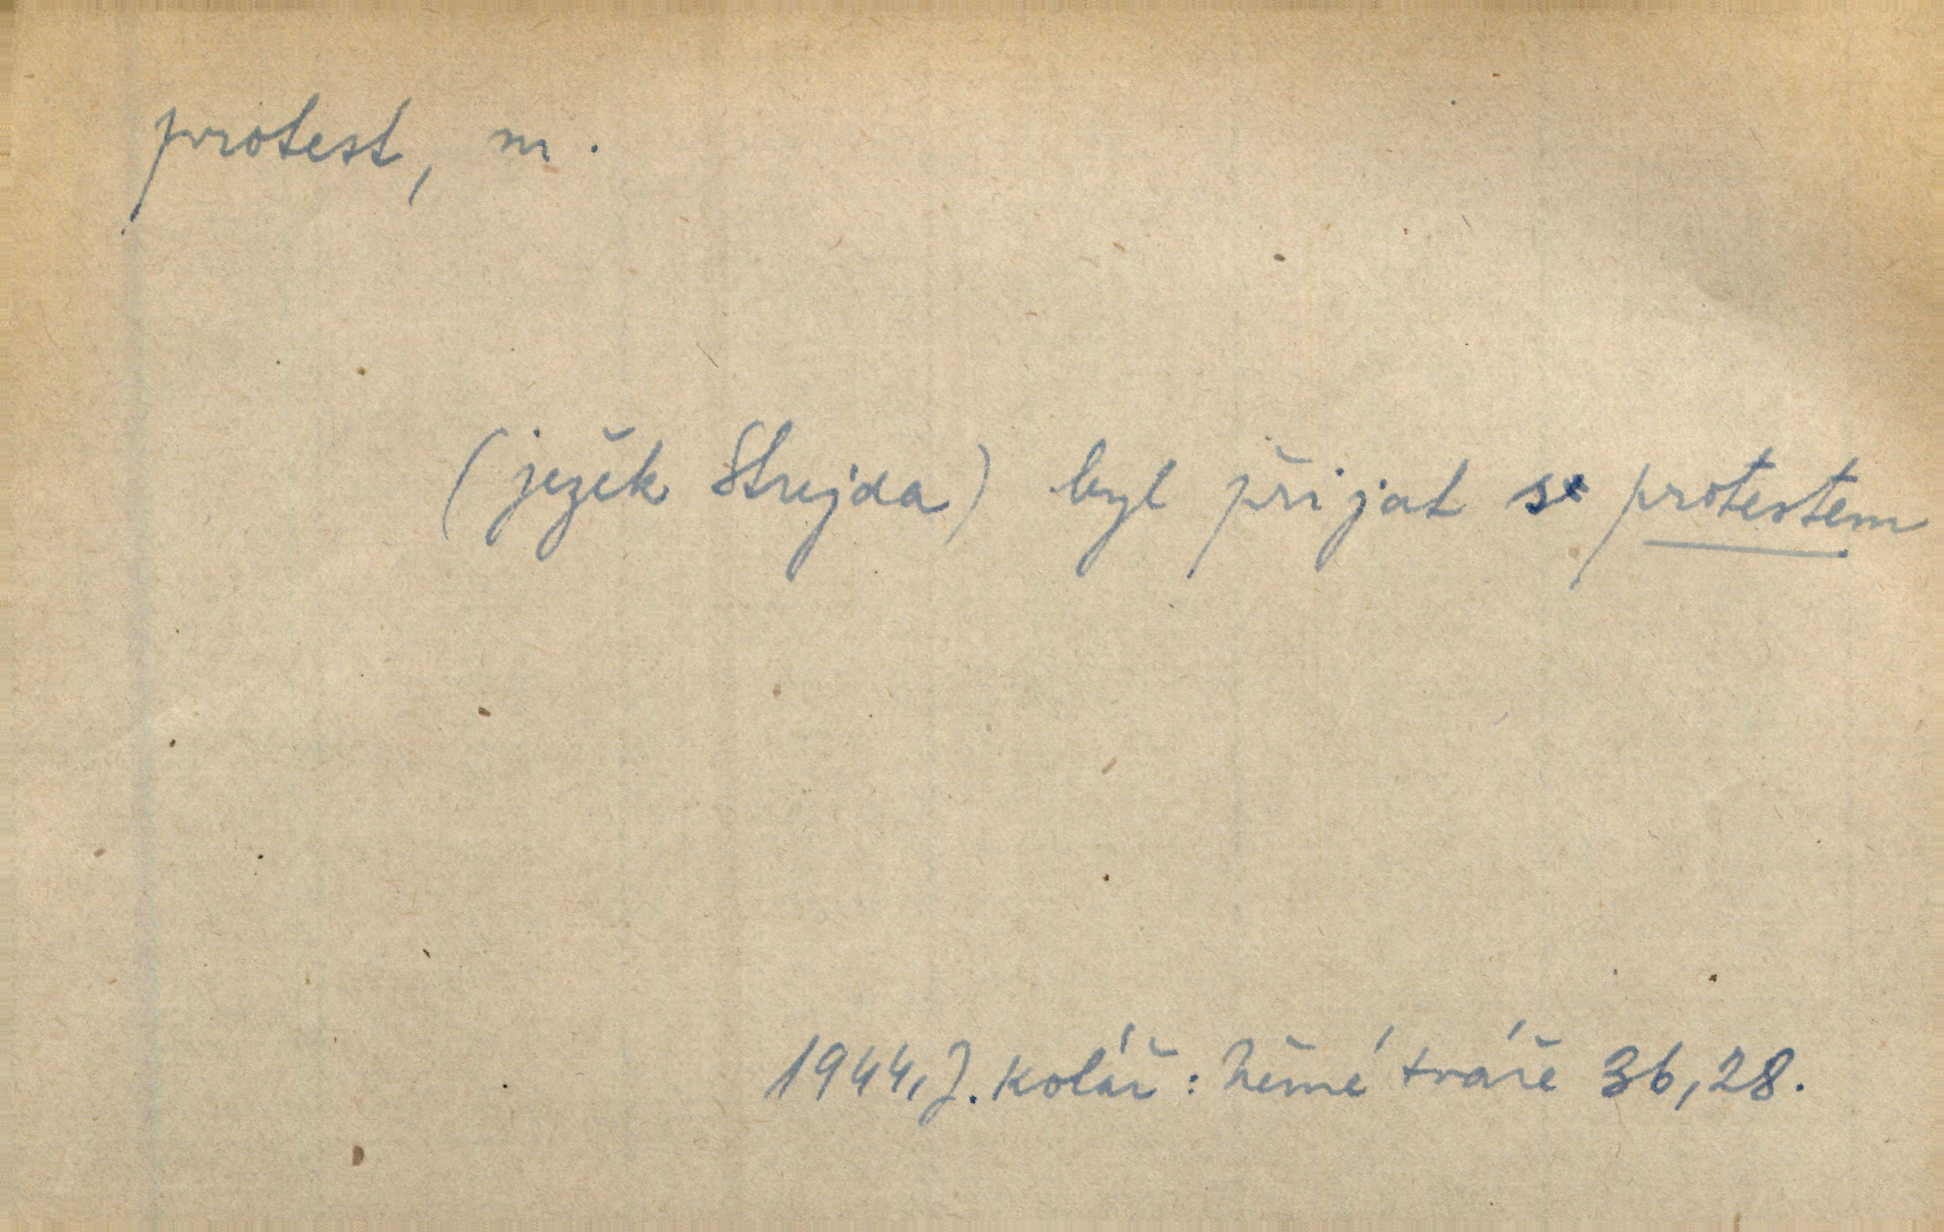 protest, m.
(ježek Strejda) byl přijat s protestem
1944, J. Kolář: Němé tváře 36, 28.